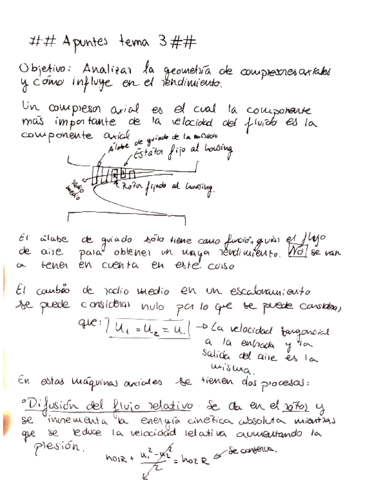 ## Apuntes tema 3##
Objetivo: Analizar la geometría de compresores axiales
y cómo influye en el rendimiento.
Un compresor axial es el cual la componente
más importante de la velocidad del fluido es la
componente axial
Álabe de guiado de la entrada
Estátor fijo al housing
Rotor fijado al housing.
radio
medio
El álabe de guiado sólo tiene como función guiar el flujo
de aire para obtener un mayor rendimiento. No se van
a tener en cuenta en este curso
El cambio de radio medio en un escalonamiento
se puede considerar nulo por lo que se puede considerar,
que: U1 = U2 = U → La velocidad tangencial
a la entrada y la
salida del aire es la
misma.
En estas máquinas axiales se tienen dos procesos:
° Difusión del flujo relativo. Se da en el rotor y
se incrementa la energía cinética absoluta mientras
que se reduce la velocidad relativa aumentando la
presión.
h01R + (u1² - u2²)/2 = h02R → Se conserva.